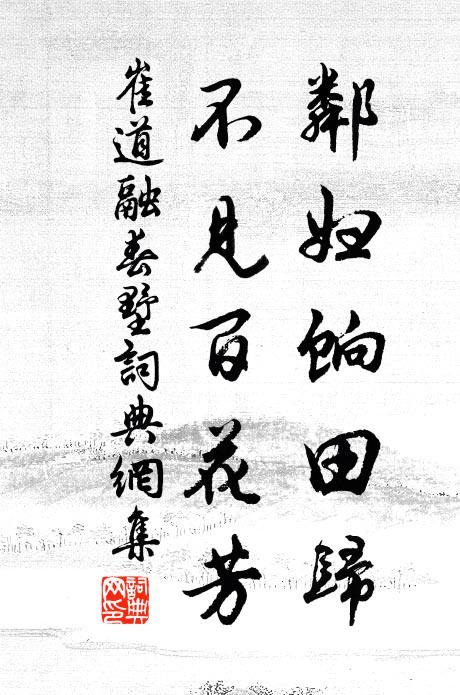 鄰婦餉田歸
不見百花芳
崔道融春墅詞典網集
詞典網印